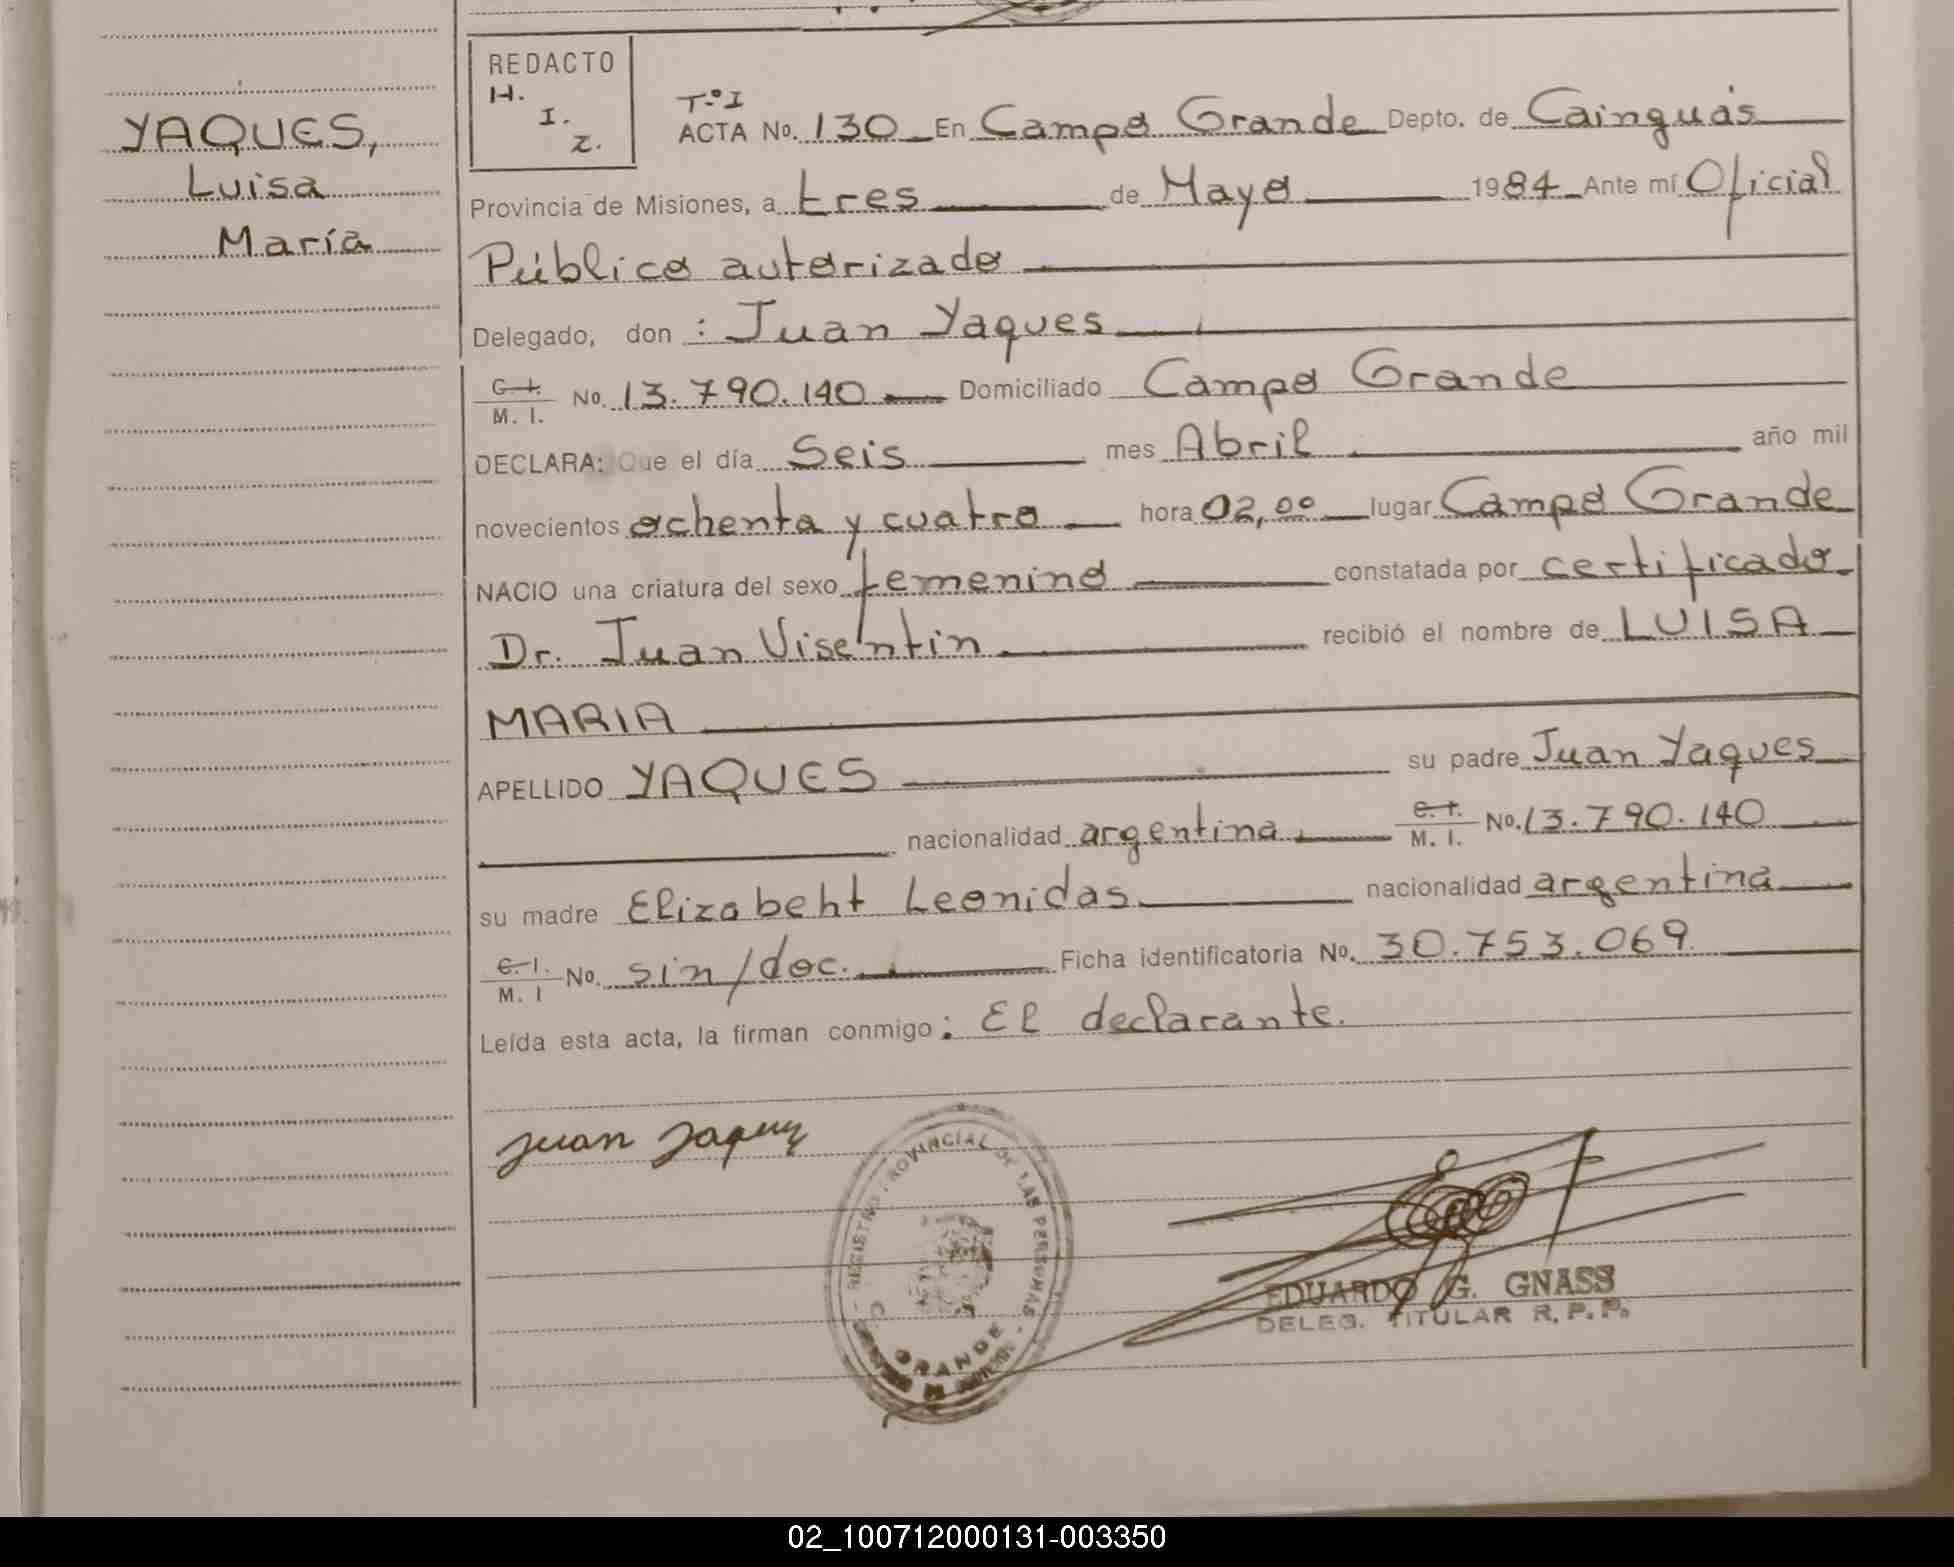 YAQUES,
Luisa
María
REDACTO
H.
I.
Z.
Tº I
ACTA No. 130 En Campo Grande Depto. de Cainguás
Provincia de Misiones, a tres de Mayo 1984 Ante mí Oficial
Público autorizado
Delegado, don : Juan Yaques
C. I.
M. I. No. 13.790.140 Domiciliado Campo Grande
DECLARA: Que el día Seis mes Abril año mil
novecientos ochenta y cuatro hora 02,00 lugar Campo Grande
NACIO una criatura del sexo femenino constatada por certificado
Dr. Juan Visentin recibió el nombre de LUISA
MARIA
APELLIDO YAQUES su padre Juan Yaques
nacionalidad argentina C. I. M. I. No. 13.790.140
su madre Elizabeht Leonidas nacionalidad argentina
C. I. M. I No. sin/doc. Ficha identificatoria No. 30.753.069
Leída esta acta, la firman conmigo: El declarante.
Juan Yaques
REGISTRO PROVINCIAL DE LAS PERSONAS
GRANDE
EDUARDO G. GNASS
DELEG. TITULAR R.P.P.
02_100712000131-003350